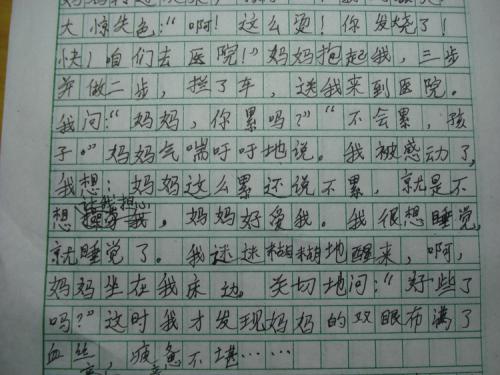 大惊失色："啊！这么烫！你发烧了！
快！咱们去医院！"妈妈抱起我，三步
并做二步，拦了车，送我来到医院。
我问："妈妈，你累吗？""不会累，孩
子。"妈妈气喘吁吁地说。我被感动了，
我想：妈妈这么累还说不累，就是不
让我担心
想，妈妈好爱我。我很想睡觉，
就睡觉了。我迷迷糊糊地醒来，啊，
妈妈坐在我床边。关切地问："好些了
吗？"这时我才发现妈妈的双眼布满了
血丝，疲惫不堪……